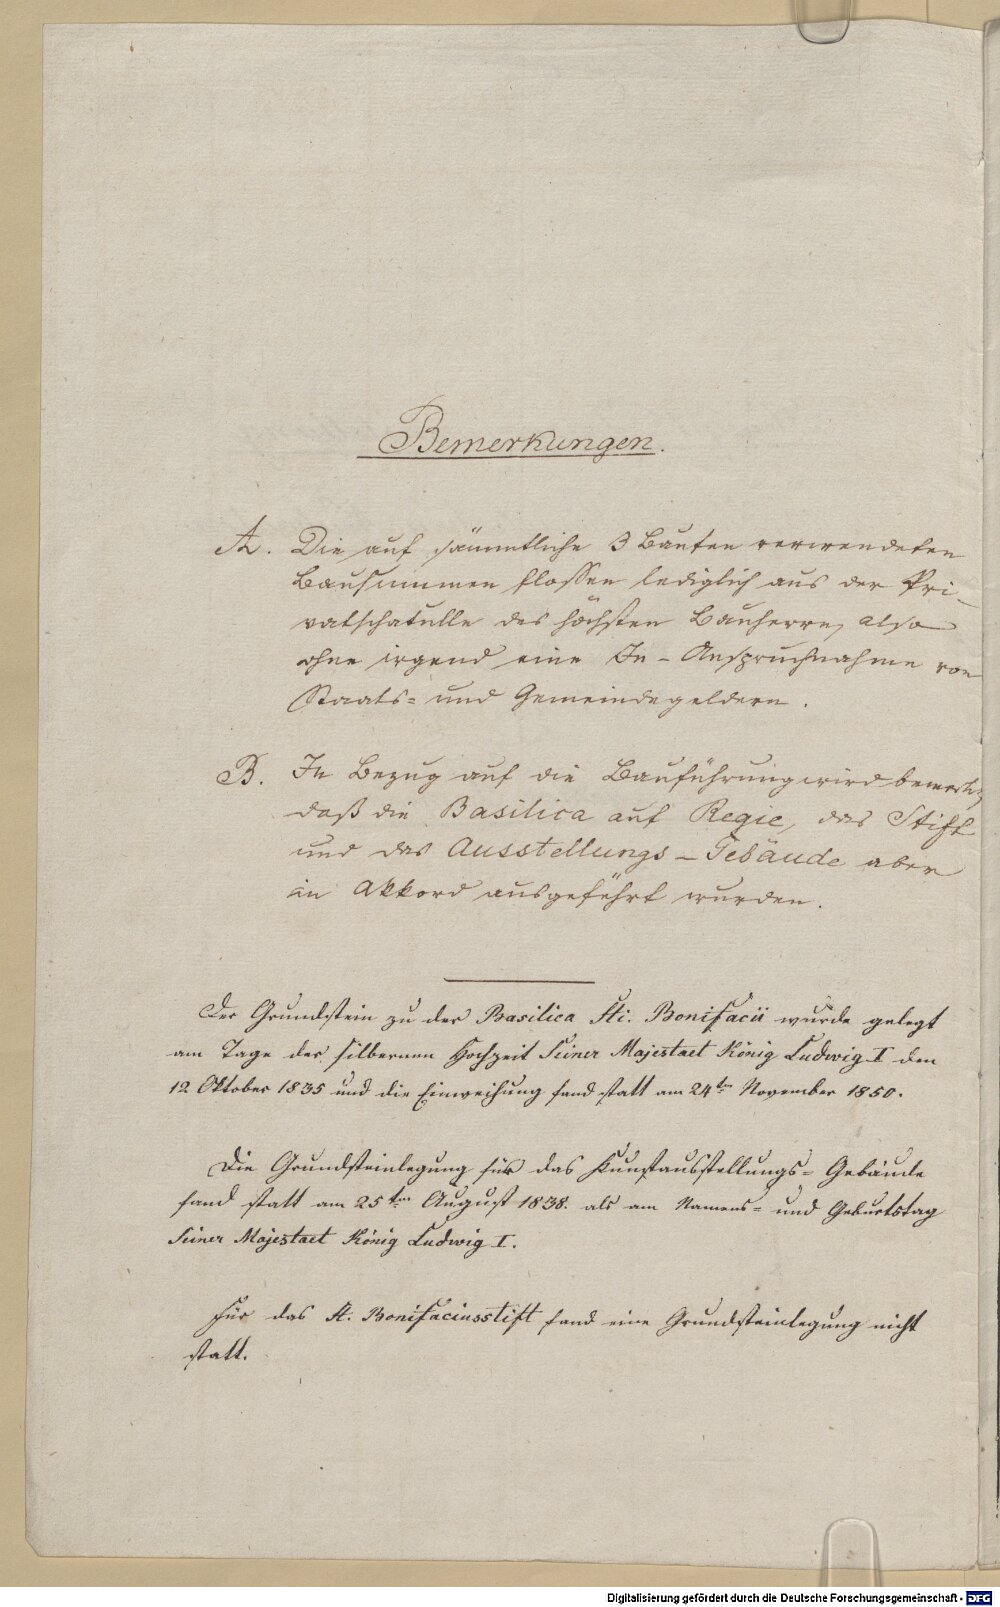 Bemerkungen.
A. Die auf sämmtliche 3 Bauten verwendeten
Bausummen flossen lediglich aus der Pri-
vatschatulle des höchsten Bauherrn, also
ohne irgend eine In-Anspruchnahme von
Staats- und Gemeindegeldern.
B. In Bezug auf die Bauführung wird bemerkt,
daß die Basilica auf Regie, das Stift
und das Ausstellungs-Gebäude aber
in Akkord ausgeführt wurden.
Der Grundstein zu der Basilica Sti. Bonifacii wurde gelegt
am Tage der silbernen Hochzeit Seiner Majestaet König Ludwig I den
12 Oktober 1835 und die Einweihung fand statt am 24ten November 1850.
Die Grundsteinlegung für das Kunstausstellungs-Gebäude
fand statt am 25ten August 1838. als am Namens- und Geburtstag
Seiner Majestaet König Ludwig I.
Für das St. Bonifaciusstift fand eine Grundsteinlegung nicht
statt.
Digitalisierung gefördert durch die Deutsche Forschungsgemeinschaft - DFG